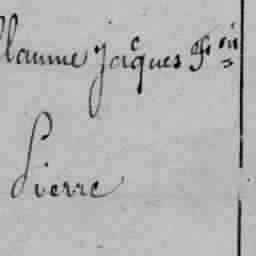 llaume Jacques F.ois
Pierre